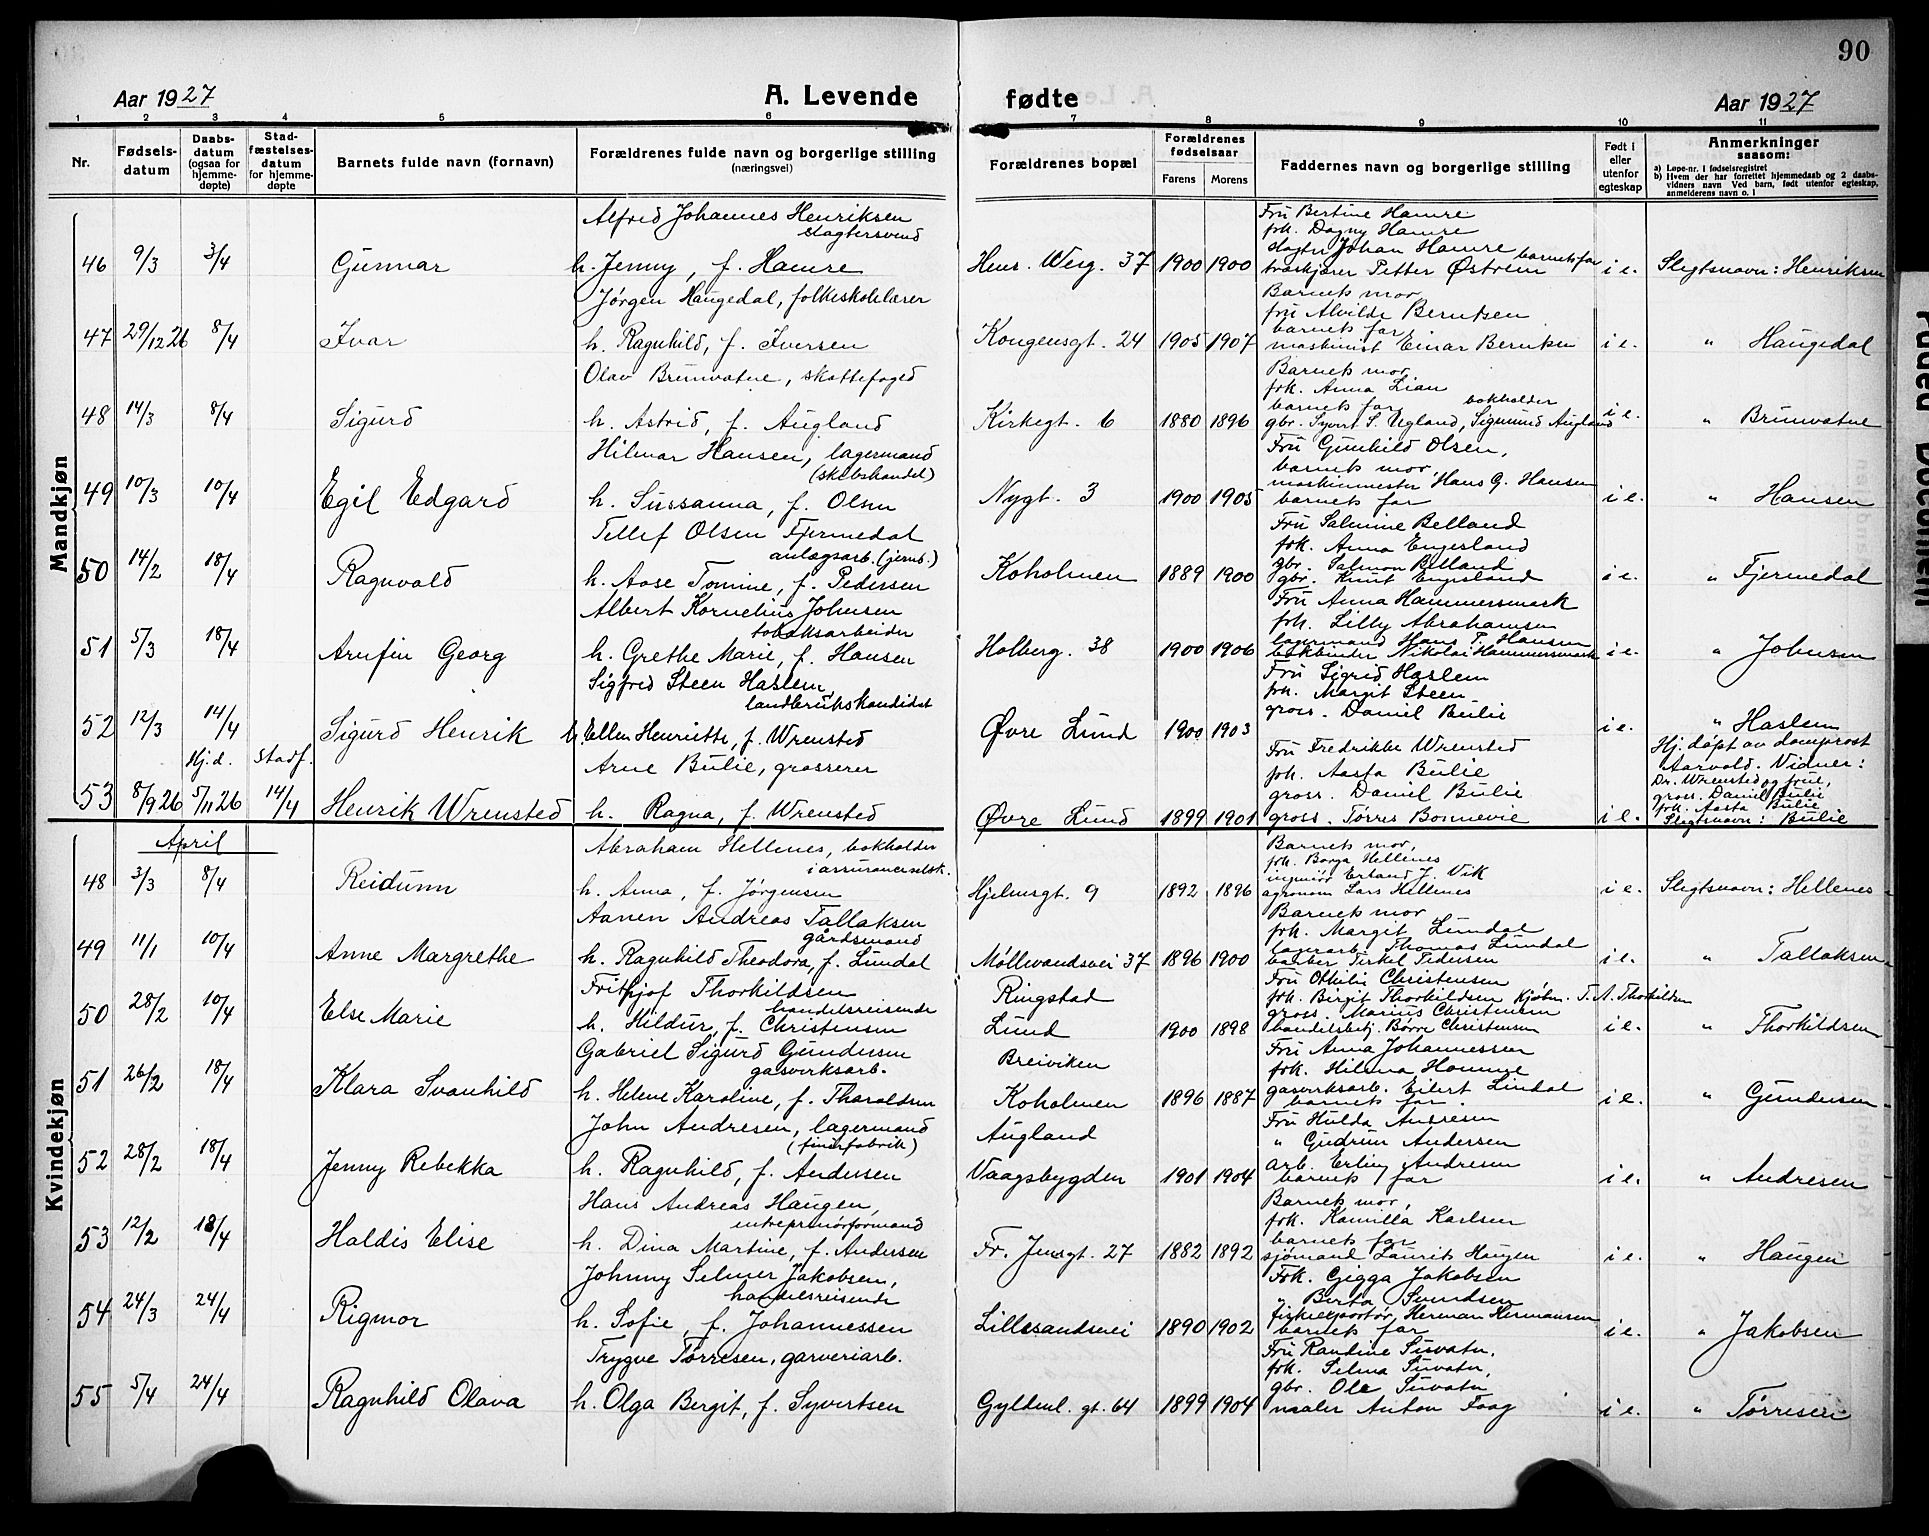 90
Aar 1927
A. Levende
fødte
Aar 1927
1 2 3 4 5 6 7 8 9 10 11
Nr.
Fødselsdatum
Daabsdatum (ogsaa for hjemmedøpte)
Stadfæstelsesdatum for hjemmedøpte
Barnets fulde navn (fornavn)
Forældrenes fulde navn og borgerlige stilling (næringsvei)
Forældrenes bopæl
Forældrenes fødselsaar
Farens Morens
Faddernes navn og borgerlige stilling
Født i eller utenfor egteskap
Anmerkninger saasom:
a) Løpe-nr. i fødselsregistret
b) Hvem der har forrettet hjemmedaab og 2 daabsvidners navn Ved barn, født utenfor egteskap, anmelderens navn o. l
Mandkjøn
Alfred Johannes Henriksen
slagtersvend
46 9/3 3/4 Gunnar h. Jenny, f. Hamre Henr. Werg. 37 1900 1900
Fru Bertine Hamre
frk. Dagny Hamre
slagter Johan Hamre barnets far
Petter Østrem i e. Slegtsnavn: Henriksen
Jørgen Haugedal, folkeskolelærer
47 29/12 26 8/4 Ivar h. Ragnhild, f. Iversen Kongensgt. 24 1905 1907
Barnets mor
fru Alvilde Berntsen
barnets far
maskinist Einar Berntsen i e. " Haugedal
Olav Brunvatne, skattefoged
48 14/3 8/4 Sigurd h. Astrid, f. Augland Kirkegt. 6 1880 1896
Barnets mor
frk. Anna Lian
barnets far bokholder
gbr. Syvert S. Ugland, Sigmund Augland i e. " Brunvatne
Hilmar Hansen, lagermand
(skobshandel)
49 10/3 10/4 Egil Edgard h. Sussanna, f. Olsen Nygt. 3 1900 1905
Fru Gunhild Olsen,
barnets mor,
maskinmester Hans G. Hansen
barnets far i e. " Hansen
Tellef Olsen Fjermedal
anlægsarb. (jernb.)
50 14/2 18/4 Ragnvald h. Aase Tomine, f. Pedersen Koholmen 1889 1900
Fru Salmine Belland
frk. Anna Engesland
gbr. Salmon Belland
gbr. Knut Engesland i e. " Fjermedal
Albert Kornelius Johnsen
tobaksarbeider
51 5/3 18/4 Arnfin Georg h. Grethe Marie, f. Hansen Holberg. 38 1900 1906
Fru Anna Hammersmark
frk. Lilly Abrahamsen
lagermand Hans T. Hansen
bokbinder Nikolai Hammersmark i e. " Johnsen
Sigfred Steen Haslem,
landbrukskandidat
52 12/3 14/4 Sigurd Henrik h. Ellen Henriette, f. Wrensted Øvre Lund 1900 1903
Fru Sigrid Haslem
frk. Margit Steen
gross. Daniel Bulie i e. " Haslem
Hj.d. Stadf.
Arne Bulie, grosserer
53 8/9 26 5/11 26 14/4 Henrik Wrensted h. Ragna, f. Wrensted Øvre Lund 1899 1901
Fru Fredrikke Wrensted
frk. Aasta Bulie
gross. Daniel Bulie
gross. Tørres Bonnevie i e.
Hj. døpt av domprost
Aarvold. Vidner:
Dr. Wrensted og frue,
gross. Daniel Bulie
frk. Aasta Bulie
Slegtsnavn: Bulie
Kvindekjøn
April
Abraham Hellenes, bokholder
i assuranceselsk.
48 3/3 8/4 Reidunn h. Anna, f. Jørgensen Hjelmsgt. 9 1892 1896
Barnets mor,
frk. Borga Hellenes
ingeniør Erland J. Vik
agronom Lars Hellenes i e. Slegtsnavn: Hellenes
Aanen Andreas Tallaksen
gårdsmand
49 11/1 10/4 Anne Margrethe h. Ragnhild Theodora, f. Lundal Møllevandsvei 37 1896 1900
Barnets mor
frk. Margit Lundal
Thomas Lundal
Terkel Pedersen i e. " Tallaksen
Frithjof Thorkildsen
handelsreisende
50 28/2 10/4 Else Marie h. Hildur, f. Christensen Ringstad
Lund 1900 1898
Fru Othilie Christensen
frk. Birgit Thorkildsen Kjøbm. T. A. Thorkildsen
gross. Marius Christensen
handelsbetj. Børre Christensen i e. " Thorkildsen
Gabriel Sigurd Gundersen
gasverksarb.
51 26/2 18/4 Klara Svanhild h. Helene Karoline, f. Tharaldsen Breiviken
Koholmen 1896 1887
Fru Anna Johannessen
frk. Hilma Homme
gasverksarb. Eilert Lindal
barnets far. i e. " Gundersen
John Andresen, lagermand
(finerfabrik)
52 28/2 18/4 Jenny Rebekka h. Ragnhild, f. Andersen Augland
Vaagsbygden 1901 1904
Fru Hulda Andresen
" Gudrun Andersen
arb. Erling Andresen
barnets far i e. " Andresen
Hans Andreas Haugen,
entreprenørformand
53 12/2 18/4 Haldis Elise h. Dina Martine, f. Andersen Fr. Jensgt. 27 1882 1892
Barnets mor,
frk. Kamilla Karlsen
barnets far
sjømand Laurits Haugen i e. " Haugen
Johnny Selmer Jakobsen,
handelsreisende
54 24/3 24/4 Rigmor h. Sofie, f. Johannessen Lillesandsvei 1890 1902
Frk. Gigga Jakobsen
" Berta Svendsen
fiskeexportør Herman Hermansen
barnets far i e. " Jakobsen
Trygve Tørresen, garveriarb.
55 5/4 24/4 Ragnhild Olava h. Olga Bergit, f. Syvertsen Gyldenl. gt. 64 1899 1904
Fru Randine Suvatn,
frk. Selma Suvatn,
gbr. Ole Suvatn
maler Anton Faag i e. " Tørresen